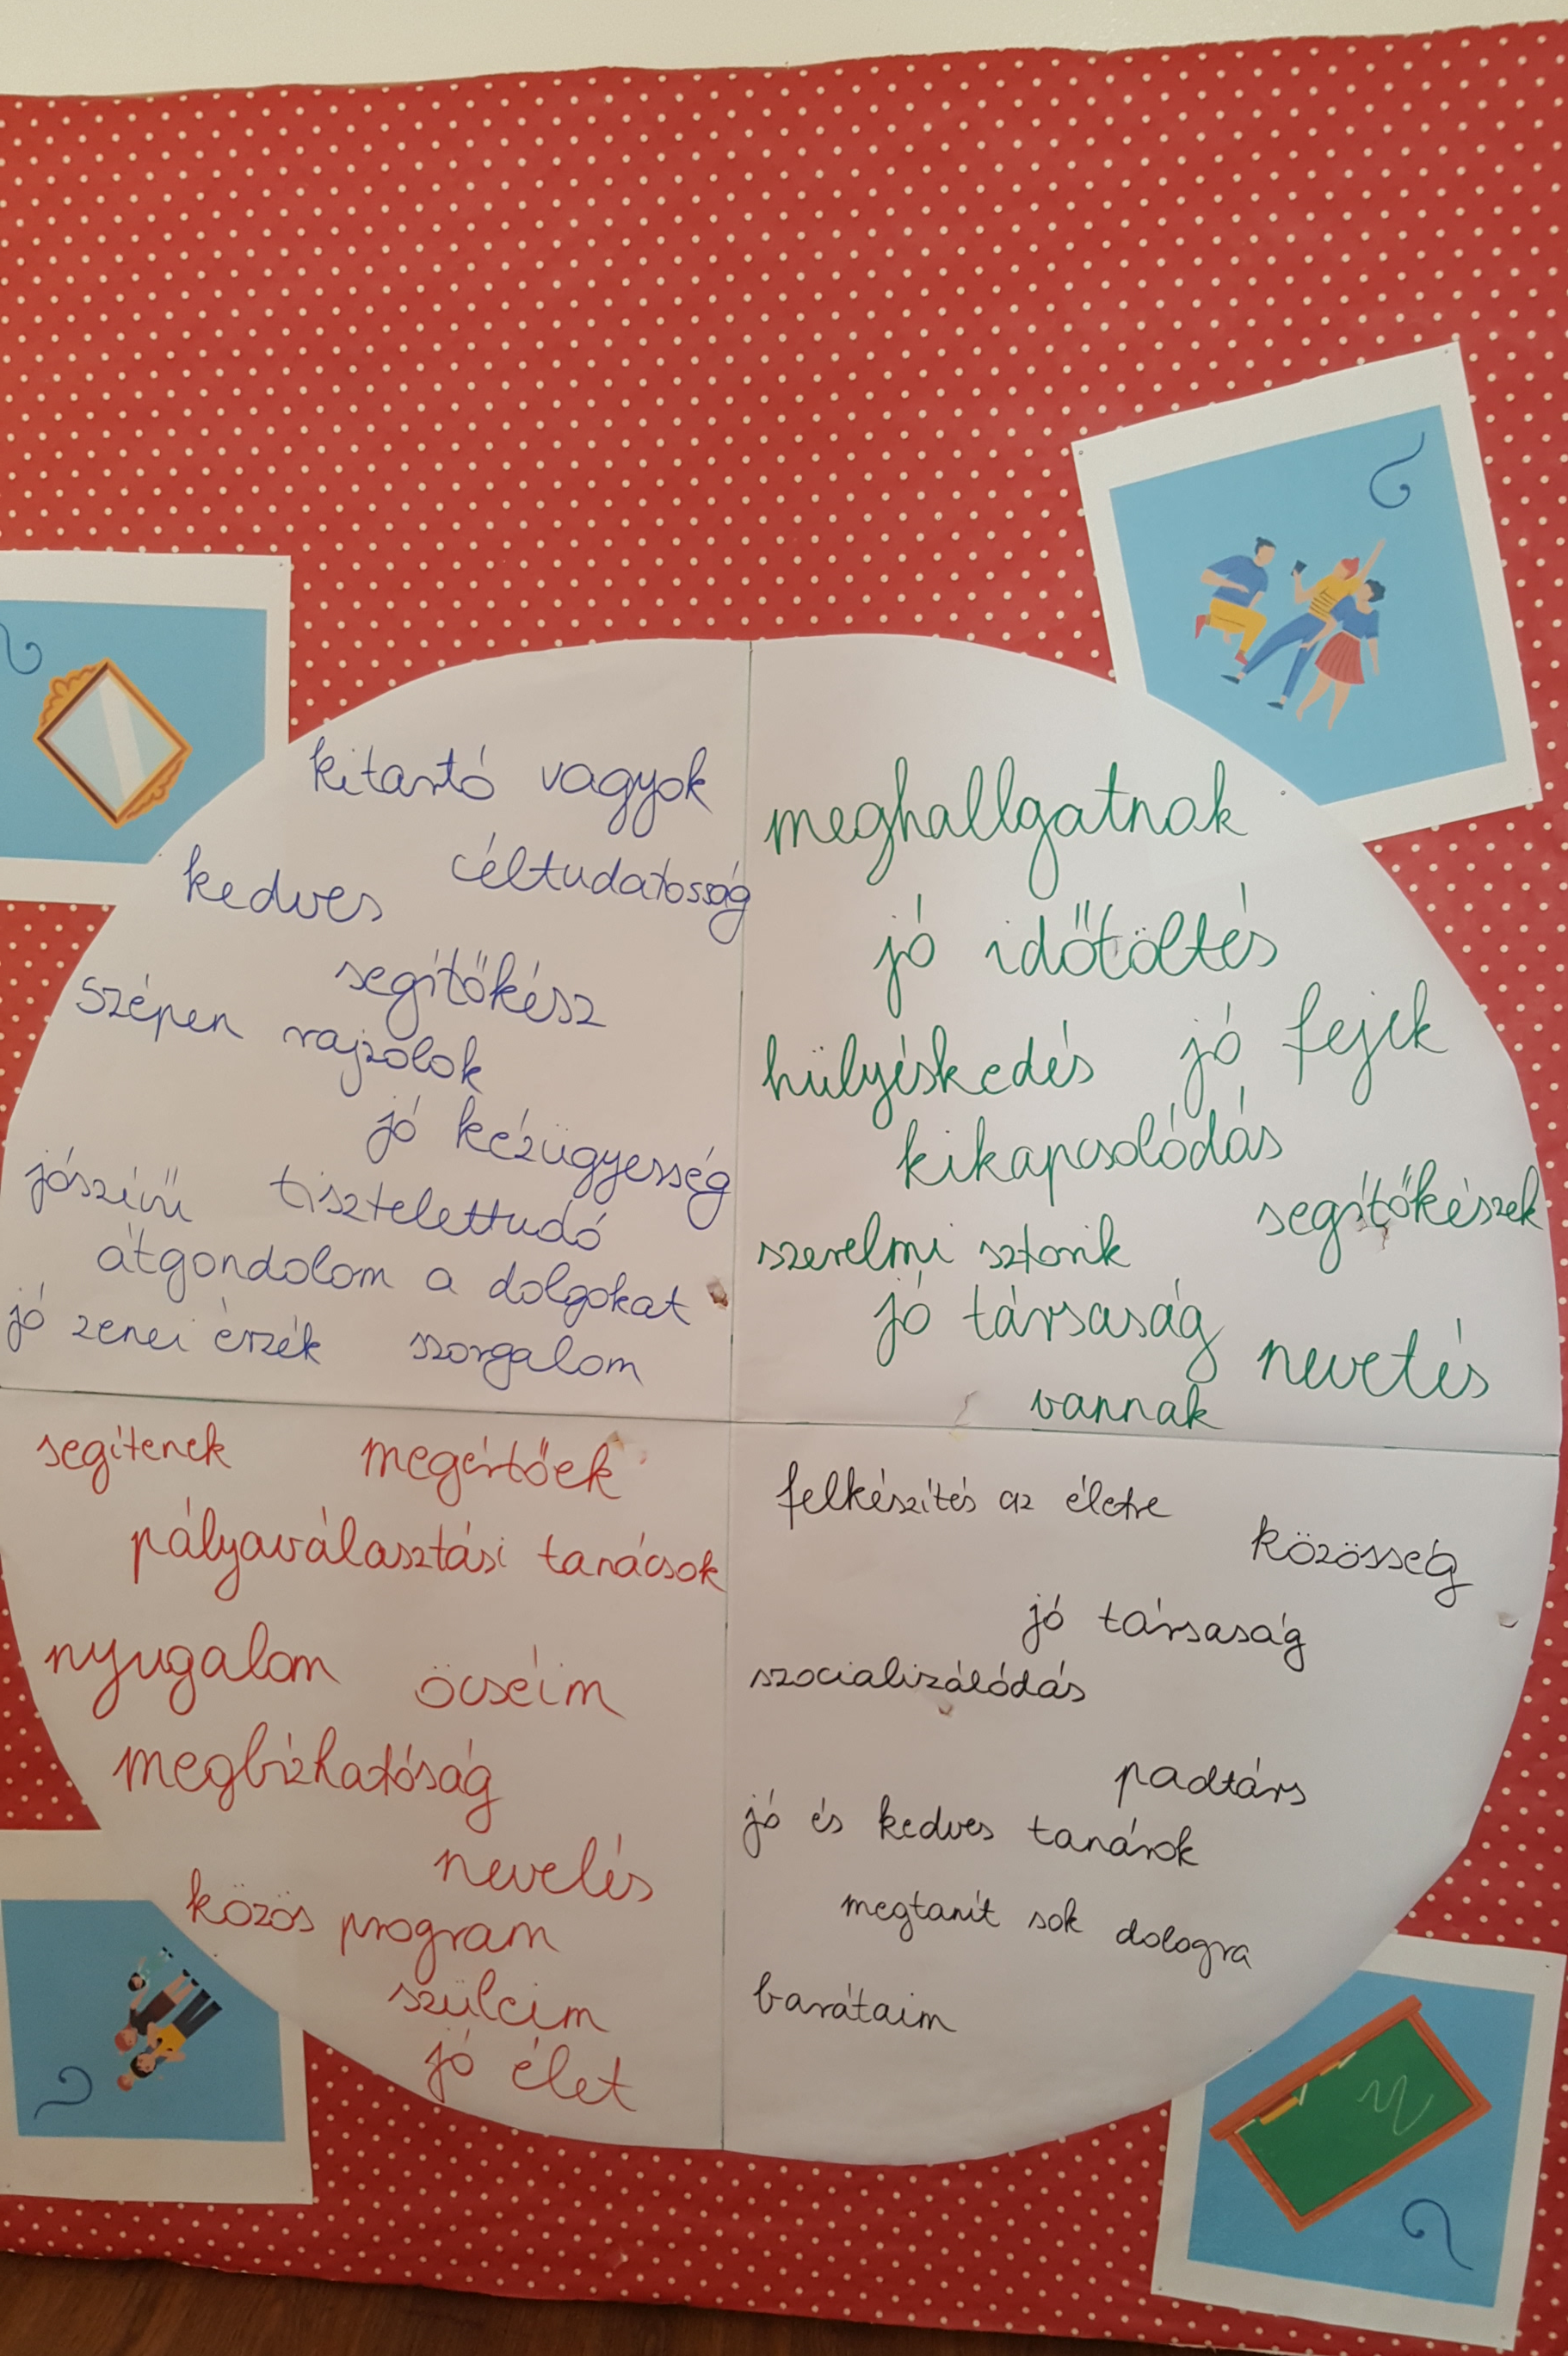 kitartó vagyok
kedves
céltudatosság
segítőkész
szépen rajzolok
jó kézügyesség
jószívű
tisztelettudó
átgondolom a dolgokat
jó zenei érzék
szorgalom
meghallgatnak
jó időtöltés
hülyéskedés
jó fejek
kikapcsolódás
segítőkészek
szerelmi sztorik
jó társaság
nevetés
vannak
segítenek
megértőek
pályaválasztási tanácsok
nyugalom
öcséim
megbízhatóság
nevelés
közös program
szüleim
jó élet
felkészítés az életre
közösség
jó társaság
szocializálódás
padtárs
jó és kedves tanárok
megtanít sok dologra
barátaim